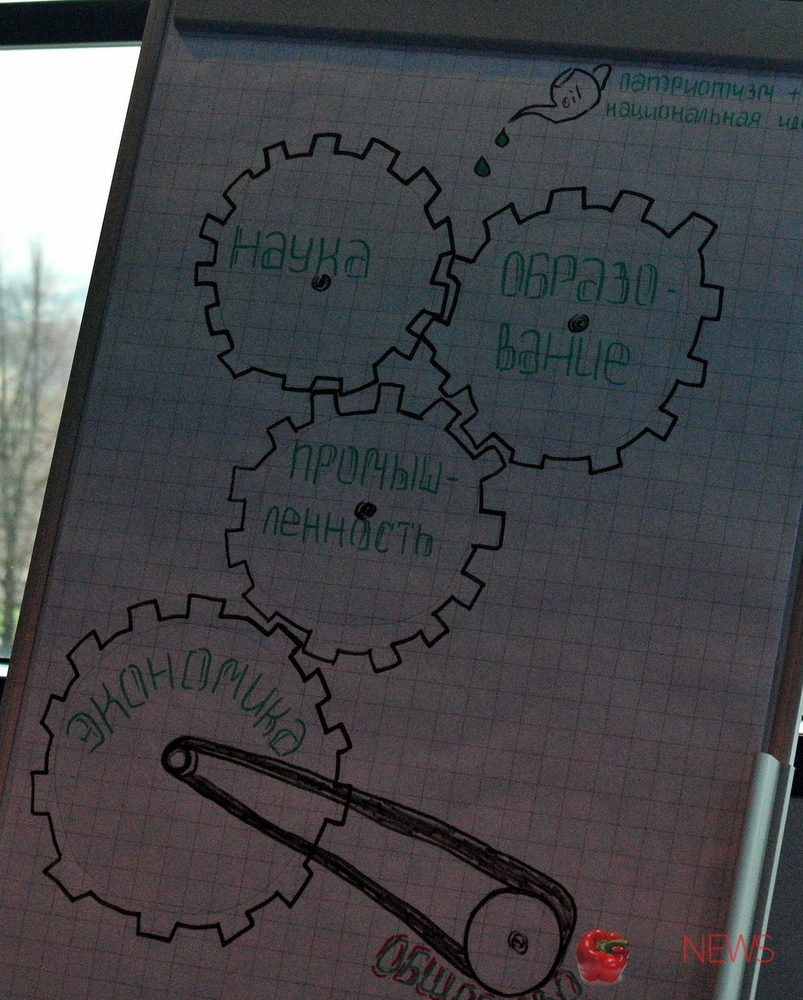 oil
патриотизм +
национальная
наука
ОБРАЗО-
вание
промыш-
ленность
ЭКОНОМИКА
NEWS